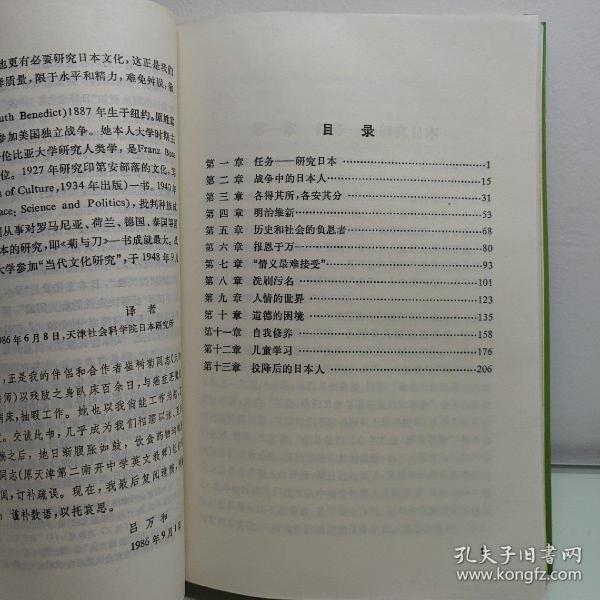 也更有必要研究日本文化，这正是我们
质量，限于水平和精力，难免舛误，
uth Benedict) 1887 年生于纽约。原姓富
参加美国独立战争。她本人大学时期主
伦比亚大学研究人类学，是 Franz Boas
位。1927 年研究印第安部落的文化，写
s of Culture，1934 年出版)一书。1940 年
ace: Science and Politics)，批判种族
从事对罗马尼亚、荷兰、德国、泰国等
本的研究，即《菊与刀》一书成就最大。
大学参加“当代文化研究”，于 1948 年 9 月
译 者
986 年 6 月 8 日，天津社会科学院日本研究所
，正是我的伴侣和合作者崔树菊同志
师)以残肢之身卧床百余日，与癌症
床，抽暇工作。她也以我尚能工作为
。交谈此书，几乎成为我们相濡以沫、
之后，她日渐腹胀如鼓，饮食药物
同志(原天津第二南开中学英文教师)
阅，订补疏误。现在，我最后复阅清样，
谨补数语，以托哀思。
吕 万 和
1986 年 9 月 1
目 录
第 一 章 任务——研究日本 …… 1
第 二 章 战争中的日本人 …… 15
第 三 章 各得其所，各安其分 …… 31
第 四 章 明治维新 …… 53
第 五 章 历史和社会的负恩者 …… 68
第 六 章 报恩于万一 …… 80
第 七 章 “情义最难接受” …… 93
第 八 章 洗刷污名 …… 101
第 九 章 人情的世界 …… 123
第 十 章 道德的困境 …… 135
第十一章 自我修养 …… 158
第十二章 儿童学习 …… 176
第十三章 投降后的日本人 …… 206
1
孔夫子旧书网
www.kongfz.com